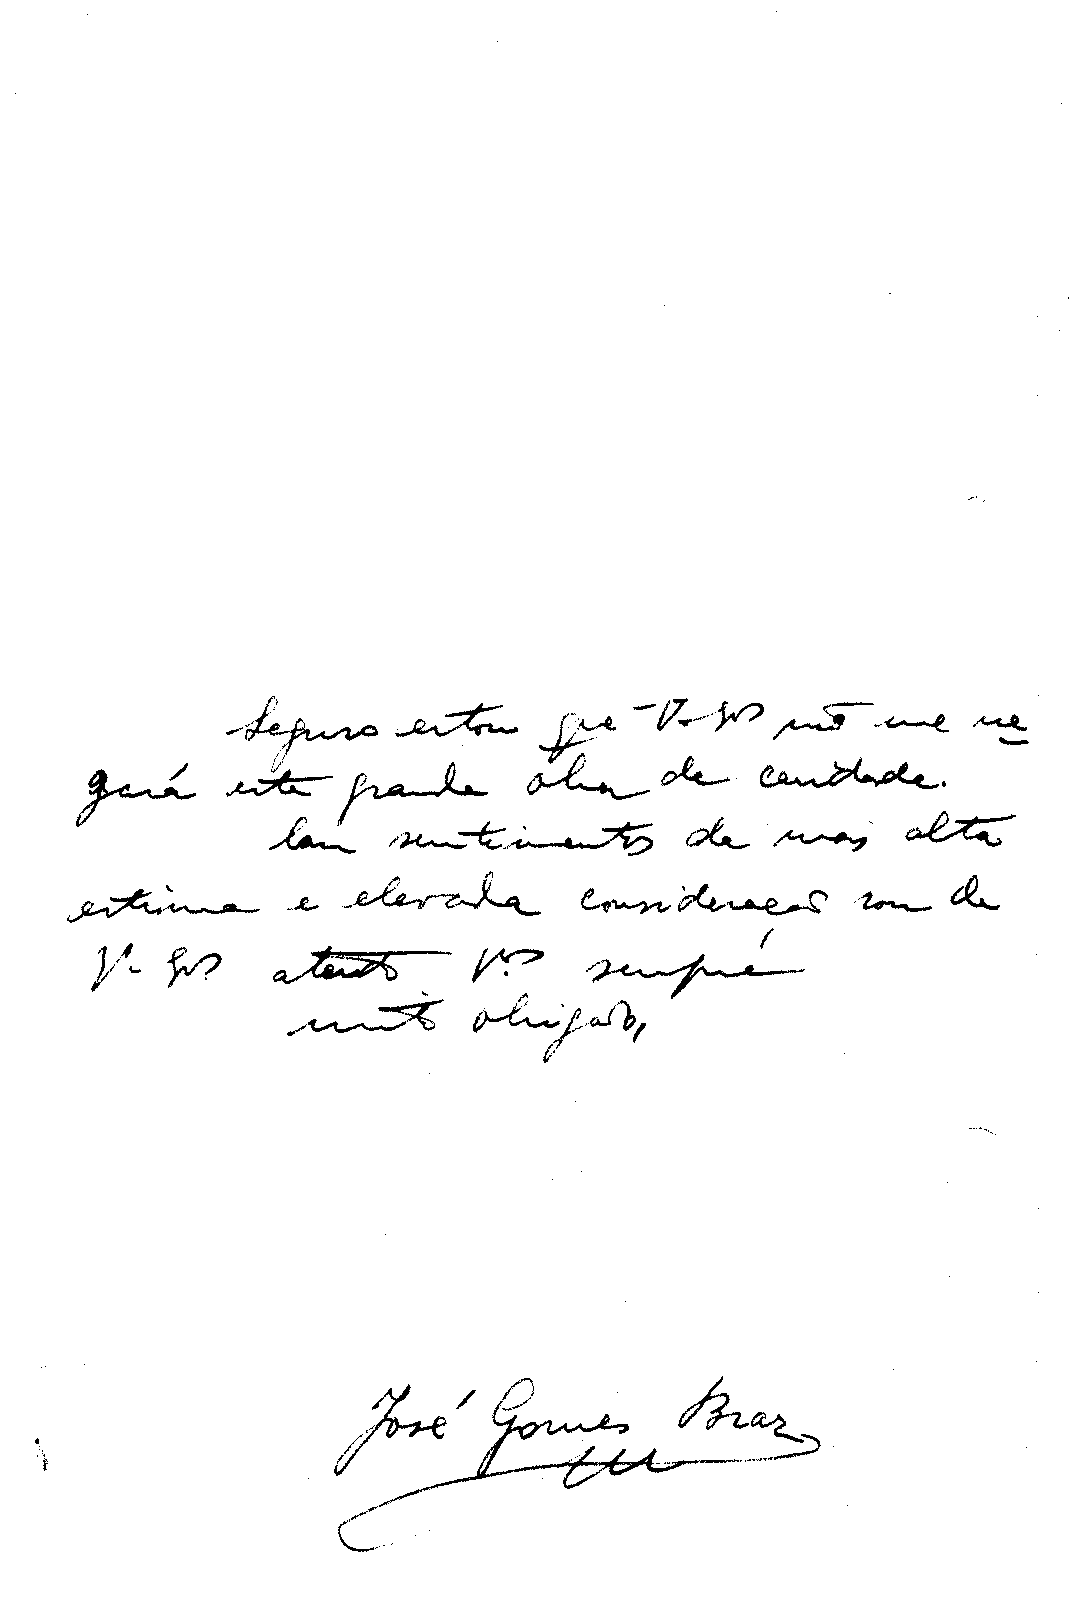 Seguro estou que V. não me ne
gará esta grande obra de caridade.
Com sentimentos de mais alta
estima e elevada consideração sou de
V. atento sempre
muito obrigado,
José Gomes Braz